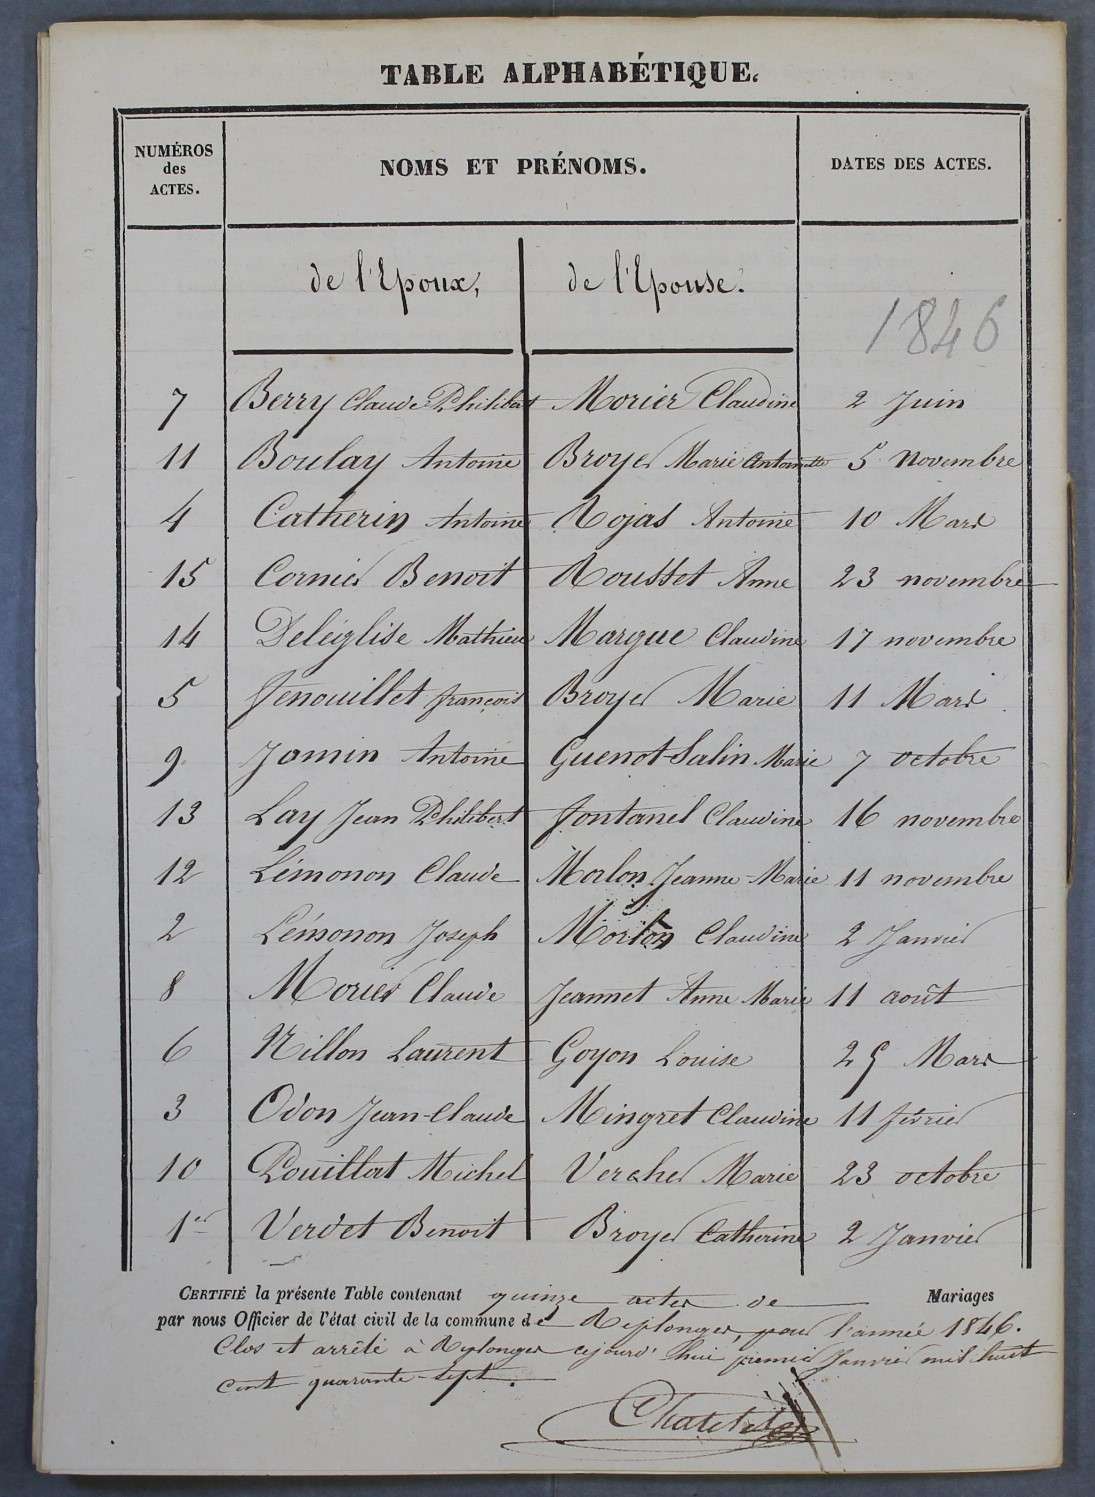 TABLE ALPHABÉTIQUE.
NUMÉROS des ACTES. NOMS ET PRÉNOMS. DATES DES ACTES.
de l'Epoux, de l'Epouse.
1846
7 Berry Claude Philibert Morier Claudine 2 Juin
11 Boulay Antoine Broyer Marie Antoinette 5 novembre
4 Catherin Antoine Rojas Antoine 10 Mars
15 Cornier Benoit Rousset Anne 23 novembre
14 Deléglise Mathieu Margue Claudine 17 novembre
5 fenouillet françois Broyer Marie 11 Mars
9 Jomin Antoine Guenot-Salin Marie 7 octobre
13 Lay Jean Philibert fontanel Claudine 16 novembre
12 Lémonon Claude Morlon Jeanne-Marie 11 novembre
2 Lémonon Joseph Morlon Claudine 2 Janvier
8 Morier Claude Jeannet Anne Marie 11 août
6 Nillon Laurent Goyon Louise 25 Mars
3 Odon Jean-Claude Mingret Claudine 11 février
10 Pouillat Michel Vercher Marie 23 octobre
1er Verdet Benoit Broyer Catherine 2 Janvier
CERTIFIÉ la présente Table contenant quinze actes de Mariages
par nous Officier de l'état civil de la commune de Replonges, pour l'année 1846.
Clos et arrêté à Replonges cejourd'hui premier Janvier mil huit
cent quarante-sept.